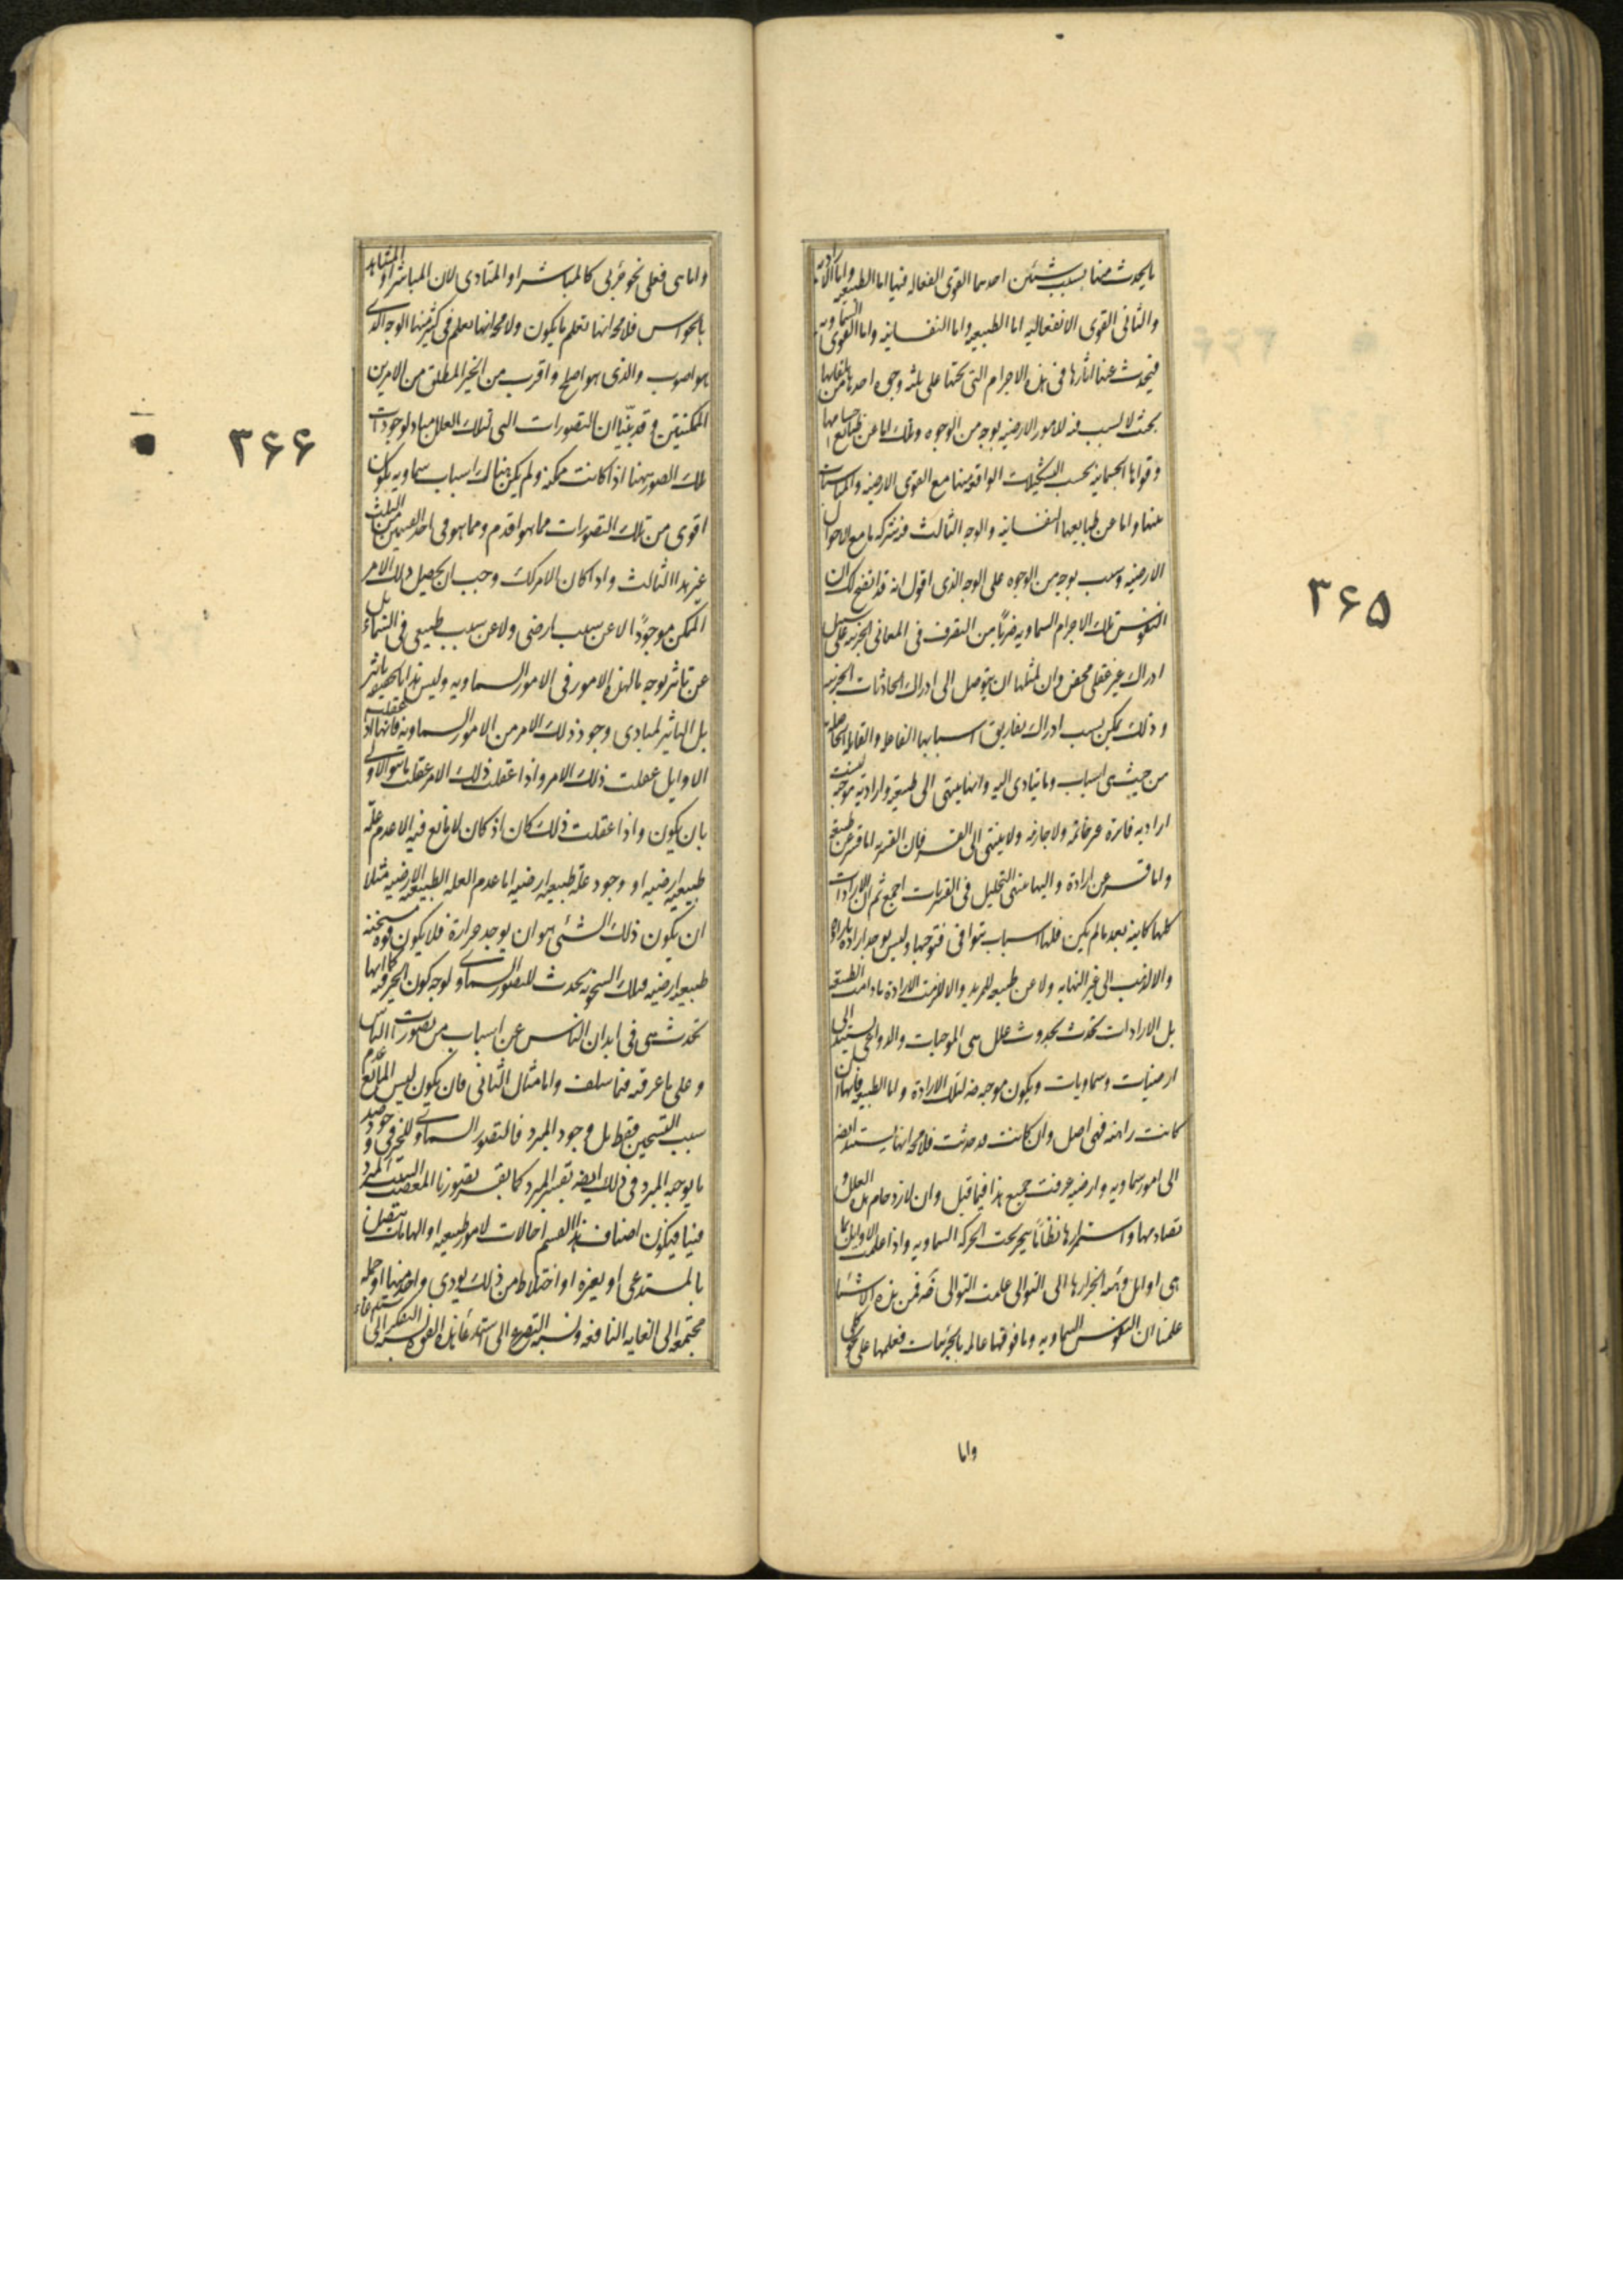 ما يحدث منها بسبب شيئين احدهما القوى الفعاله فيها اما الطبيعيه واما الاراديه
والثانى القوى الانفعاليه اما الطبيعيه واما النفسانيه واما القوى السماويه
فيحدث عنها اثارها فى هذه الاجرام التى تحتها على ثلثه وجوه احدها من تلقايها
بحيث لا تسبب فيه للامور الارضيه بوجه من الوجوه وتلك اما عن طبايع اجسامها
وقواها الجسمانيه بحسب التشكيلات الواقعه منها مع القوى الارضيه والمناسبات
عنها واما عن طبايعها النفسانيه والوجه الثالث فيه شركه ما مع الاحوال
الارضيه وسبب بوجه من الوجوه على الوجه الذى اقول انه قد اتضح لك ان
النفوس تلك الاجرام السماويه ضربًا من التصرف فى المعانى الجزئيه على سبيل
ادراك غير عقلى محض وان لمثلها ان يتوصل الى ادراك الحادثات الجزييه
وذلك يمكن بسبب ادراك تفاريق اسبابها الفاعله والقابله الحاصله
من حيث هى اسباب وما يتادى اليه وانها ينتهى الى طبيعته وارادته موجبه ليست
اراديه فاتره غير حاتمه ولا جازمه ولا ينتهى الى القسر فان القسر اما قسر عن طبيعه
واما قسر عن ارادة واليها ينتهى التحليل فى القسريات اجمع ثم ان الارادات
كلها كاينه بعد ما لم يكن فلها اسباب تتوافى فتوجبها وليس يوجد ارادة باراده
والا لذهب الى غير النهايه ولا عن طبيعه للمريد والا للزمت الارادة ما دامت الطبيعه
بل الارادات تحدث بحدوث علل هى الموجبات والدواعى يستند الى
ارضيات وسماويات ويكون موجبه لتلك الارادة واما الطبيعه فانها ان
كانت راهنه فهى اصل وان كانت قد حدثت فلا محه انها يستند ايضه
الى امور سماويه وارضيه عرفت جميع هذا فيما قبل وان لازدحام هذه العلل و
تصادمها واستمرارها نظامًا ينجر تحت الحركه السماويه واذا علمت الاوايل بما
هى اوايل وهيئه انجرارها الى التوالى علمت التوالى ضه فمن هذه الاشيا
علمنا ان النفوس السماويه وما فوقها عالمه بالجزئيات فعلمها على نحو كلى
واما
٣٦٥
واما هى فعلى نحو جزئى كالمباشر او المتادى لان المباشر او المشاهد
بالحواس فلا محه انها تعلم ما يكون ولا محه انها تعلم فى كثير منها الوجه الذى
هو اصوب والذى هو اصلح واقرب من الخير المطلق من الامرين
الممكنين وقد بيّنا ان التصورات التى لتلك العلل مباد لوجودات
تلك الصور ههنا اذا كانت ممكنه ولم يكن هناك اسباب سماويه يكون
اقوى من تلك التصورات مما هو اقدم ومما هو فى احد القسمين من الثلث
غير هذا الثالث واذا كان الامر كك وجب ان يحصل ذلك الامر
الممكن موجودًا لا عن سبب ارضى ولا عن سبب طبيعى فى السماء بل
عن تاثير بوجه ما لهذه الامور فى الامور السماويه وليس هذا بالحقيقه تاثير
بل التاثير لمبادى وجود ذلك الامر من الامور السماويه فانها اذا عقلت
الاوايل عقلت ذلك الامر واذا عقلت ذلك الامر عقلت ما هو الاولى
بان يكون واذا عقلت ذلك كان اذ كان لا مانع فيه الا عدم علّه
طبيعيه ارضيه او وجود علّه طبيعيه ارضيه اما عدم العله الطبيعيه الارضيه مثلا
ان يكون ذلك الشئى هو ان يوجد حرارة فلا يكون قوه مسخنه
طبيعيه ارضيه فتلك السخونه يحدث للتصور السماوى لوجه كون الخير فيه كما انها
تحدث هى فى ابدان الناس عن اسباب من تصورات الناس
وعلى ما عرفته فيما سلف واما مثال الثانى فان يكون ليس المانع عدم
سبب التسخين فقط بل وجود المبرد فالتصور السماوى للخير فى وجود ضد
ما يوجبه المبرد فى ذلك ايضه يقسر المبرد كما يقسر تصورنا المغضب السبب المبرد
فينا فيكون اصناف هذا القسم احالات لامور طبيعيه او الهامات يتصل
بالمستدعى او بغيره او اختلاط من ذلك يودى واحد منها او جمله
مجتمعه الى الغايه النافعه ونسبه التضرع الى استدعاء هذه القوه نسبه التفكر الى
٣٦٦